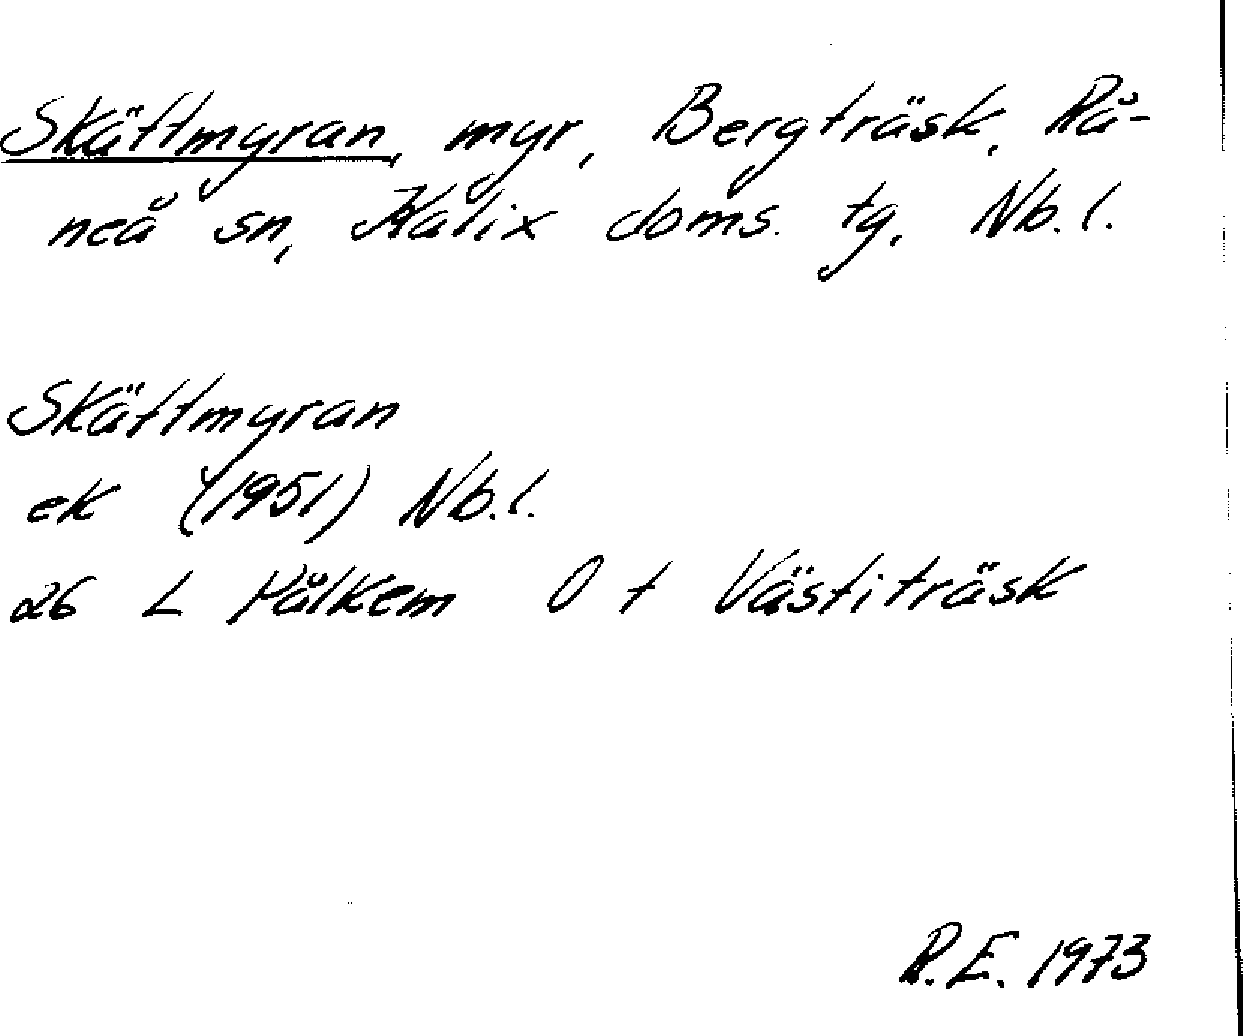 Skättmyran, myr, Bergträsk, Rå-
neå sn, Kalix doms. tg, Nb. l.
Skättmyran
ek (1951) Nb. l.
26 L Pålkem O t Västiträsk
R.E. 1973